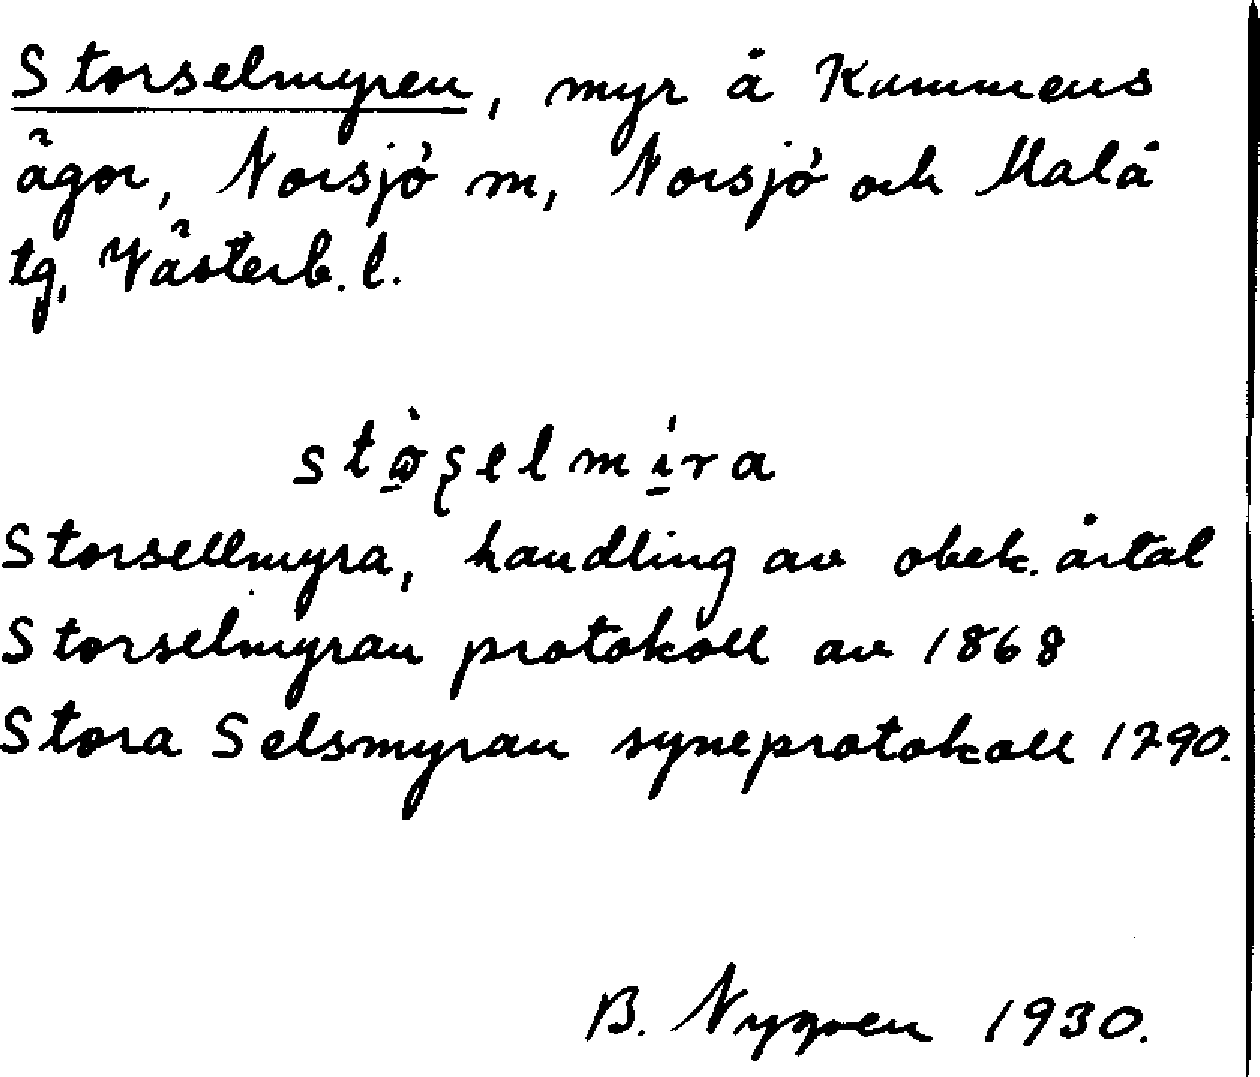 Storselmyren, myr å Kummens
ägor, Norsjö sn, Norsjö och Malå
tg, Västerb. l.
Storsellmyra, handling av obek. årtal
Storselmyran protokoll av 1868
Stora Selsmyran syneprotokoll 1790.
B. Nygren 1930.